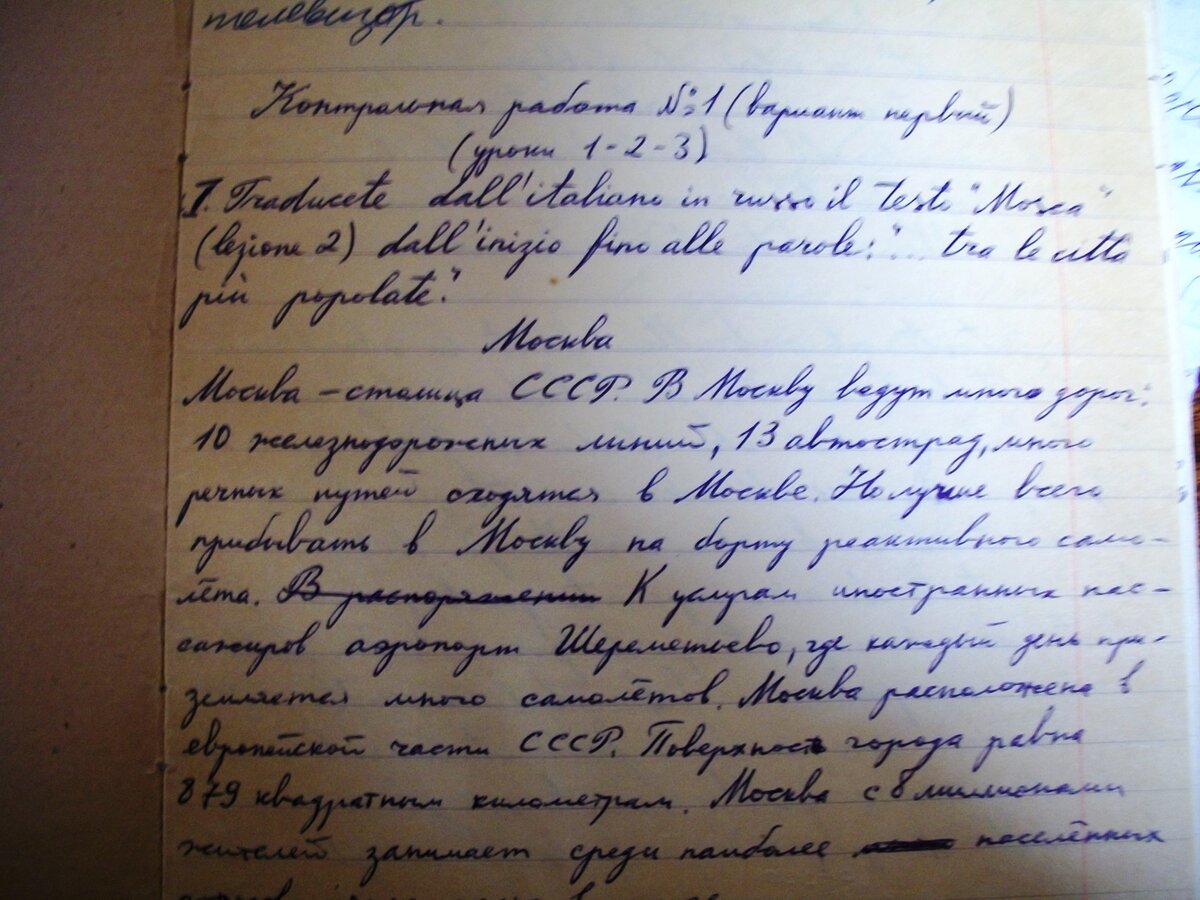 телевизор.
Контрольная работа №1 (вариант первый)
(уроки 1-2-3)
I. Traducete dall'italiano in russo il testo "Mosca"
(lezione 2) dall'inizio fino alle parole: "... tra le citta
più popolate".
Москва
Москва – столица СССР. В Москву ведут много дорог:
10 железнодорожных линий, 13 автострад, много
речных путей сходятся в Москве. Но лучше всего
прибывать в Москву на борту реактивного само-
лёта. В распоряжении К услугам иностранных пас-
сажиров аэропорт Шереметьево, где каждый день при-
земляется много самолётов. Москва расположена в
европейской части СССР. Поверхность города равна
879 квадратным километрам. Москва с 8 миллионами
жителей занимает среди наиболее населённых